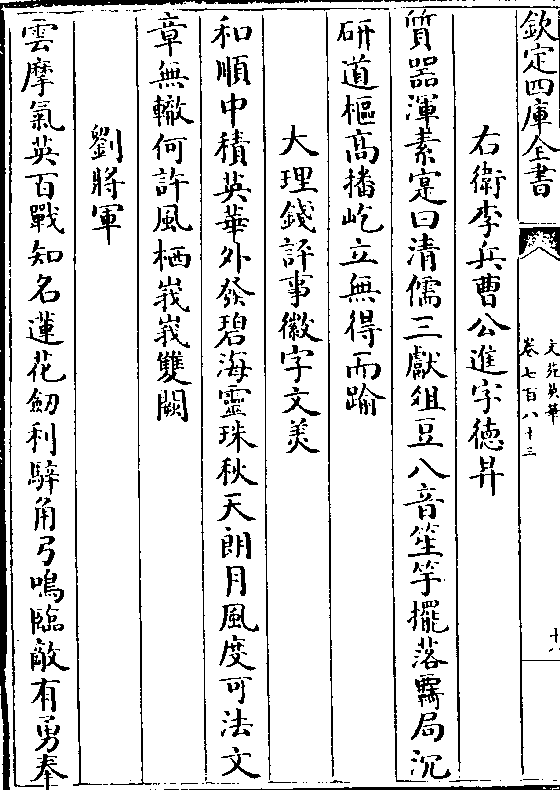 欽定四庫全書
文苑英華
卷七百八十三
十八
右衛李兵曹公進字德昇
質器渾素寔曰清儒三獻俎豆八音笙竽擺落羇局沉
研道樞髙播屹立無得而踰
大理錢評事徽字文美
和順中積英華外發碧海靈珠秋天朗月風度可法文
章無轍何許風栖峩峩雙闕
劉將軍
雲摩氣英百戰知名蓮花劒利騂角弓鳴臨敵有勇奉